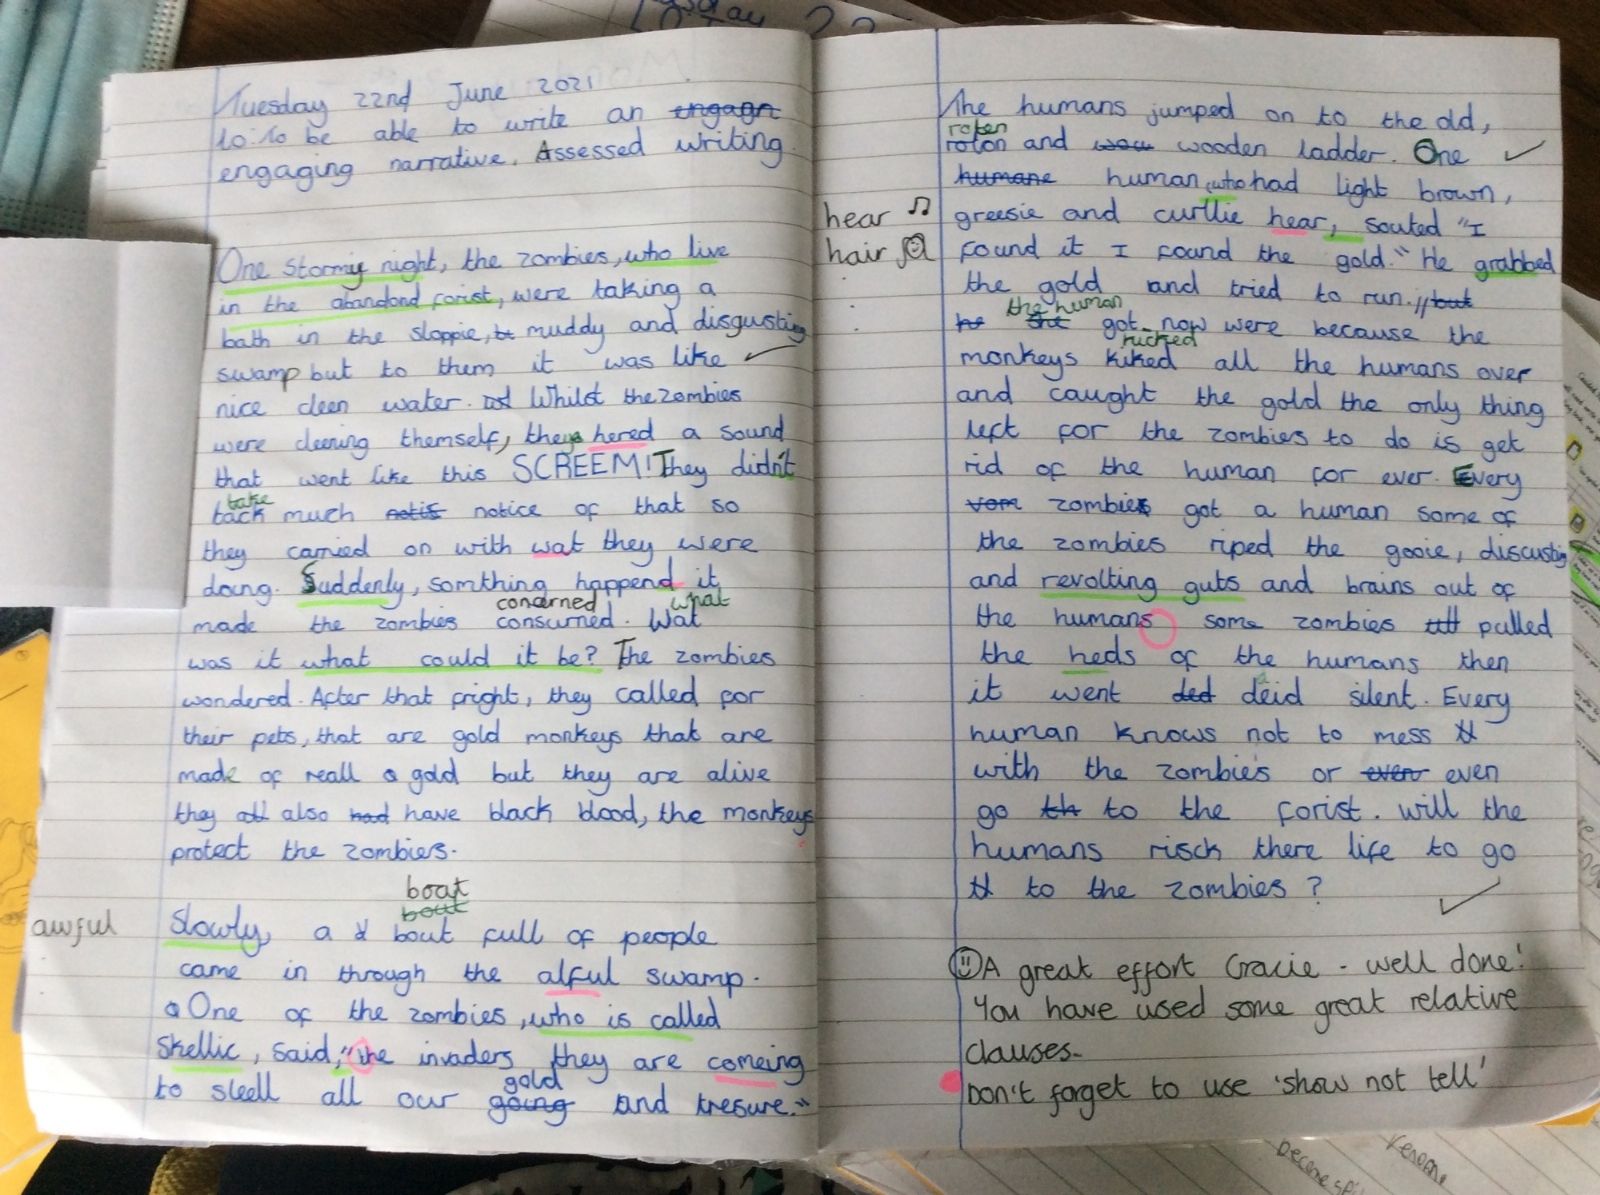 Tuesday 22nd June 2021
Lo: to be able to write an engagn
engaging narrative. Assessed writing.
One stormy night, the zombies, who live
in the abandond forist, were taking a
bath in the sloppie, muddy and disgusting
swamp but to them it was like
nice cleen water. Whilst the zombies
were cleening themself, they hered a sound
that went like this SCREEM! They didn't
take
tack much notis notice of that so
they carried on with wat they were
doing. Suddenly, somthing happend it
concerned what
made the zombies consurned. Wat
was it what could it be? The zombies
wondered. After that fright, they called for
their pets, that are gold monkeys that are
made of reall gold but they are alive
they also had have black blood, the monkeys
protect the zombies.
boat
bout
awful
Slowly, a bout full of people
came in through the alful swamp.
One of the zombies, who is called
Skellic, said, "the invaders they are comeing
gold
to sleell all our going and tresure."
The humans jumped on to the old,
roten
roton and wooden ladder. One
humane human, who had light brown,
hear
greesie and curllie hear, souted "I
hair
found it I found the gold." He grabbed
the gold and tried to run. // but
the human
he got now were because the
kicked
monkeys kiked all the humans over
and caught the gold the only thing
left for the zombies to do is get
rid of the human for ever. Every
zombie got a human some of
the zombies riped the gooie, discusting
and revolting guts and brains out of
the humans some zombies pulled
the heds of the humans then
it went ded deid silent. Every
human knows not to mess
with the zombies or even even
go th to the forist. will the
humans risck there life to go
to the zombies?
A great effort Gracie - well done!
You have used some great relative
clauses.
Don't forget to use 'show not tell'